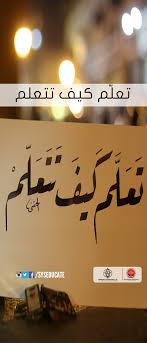 تعلّم كيف تتعلم
تَعَلَّمْ كَيفَ تَتَعَلَّمْ
/SYSEDUCATE